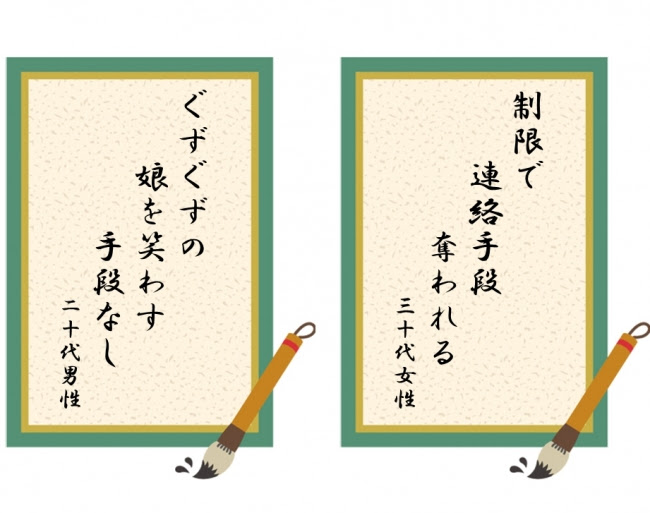 制限で
連絡手段
奪われる
三十代女性
ぐずぐずの
娘を笑わす
手段なし
二十代男性